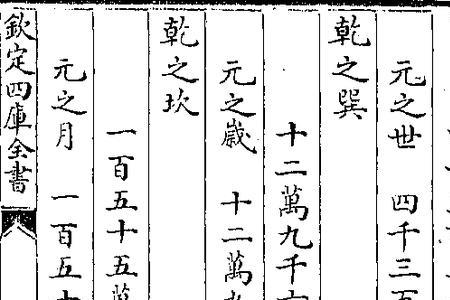 元之世 四千三百
乾之巽
十二萬九千六
元之歲 十二萬九
乾之坎
一百五十五萬
元之月 一百五十
欽定四庫全書